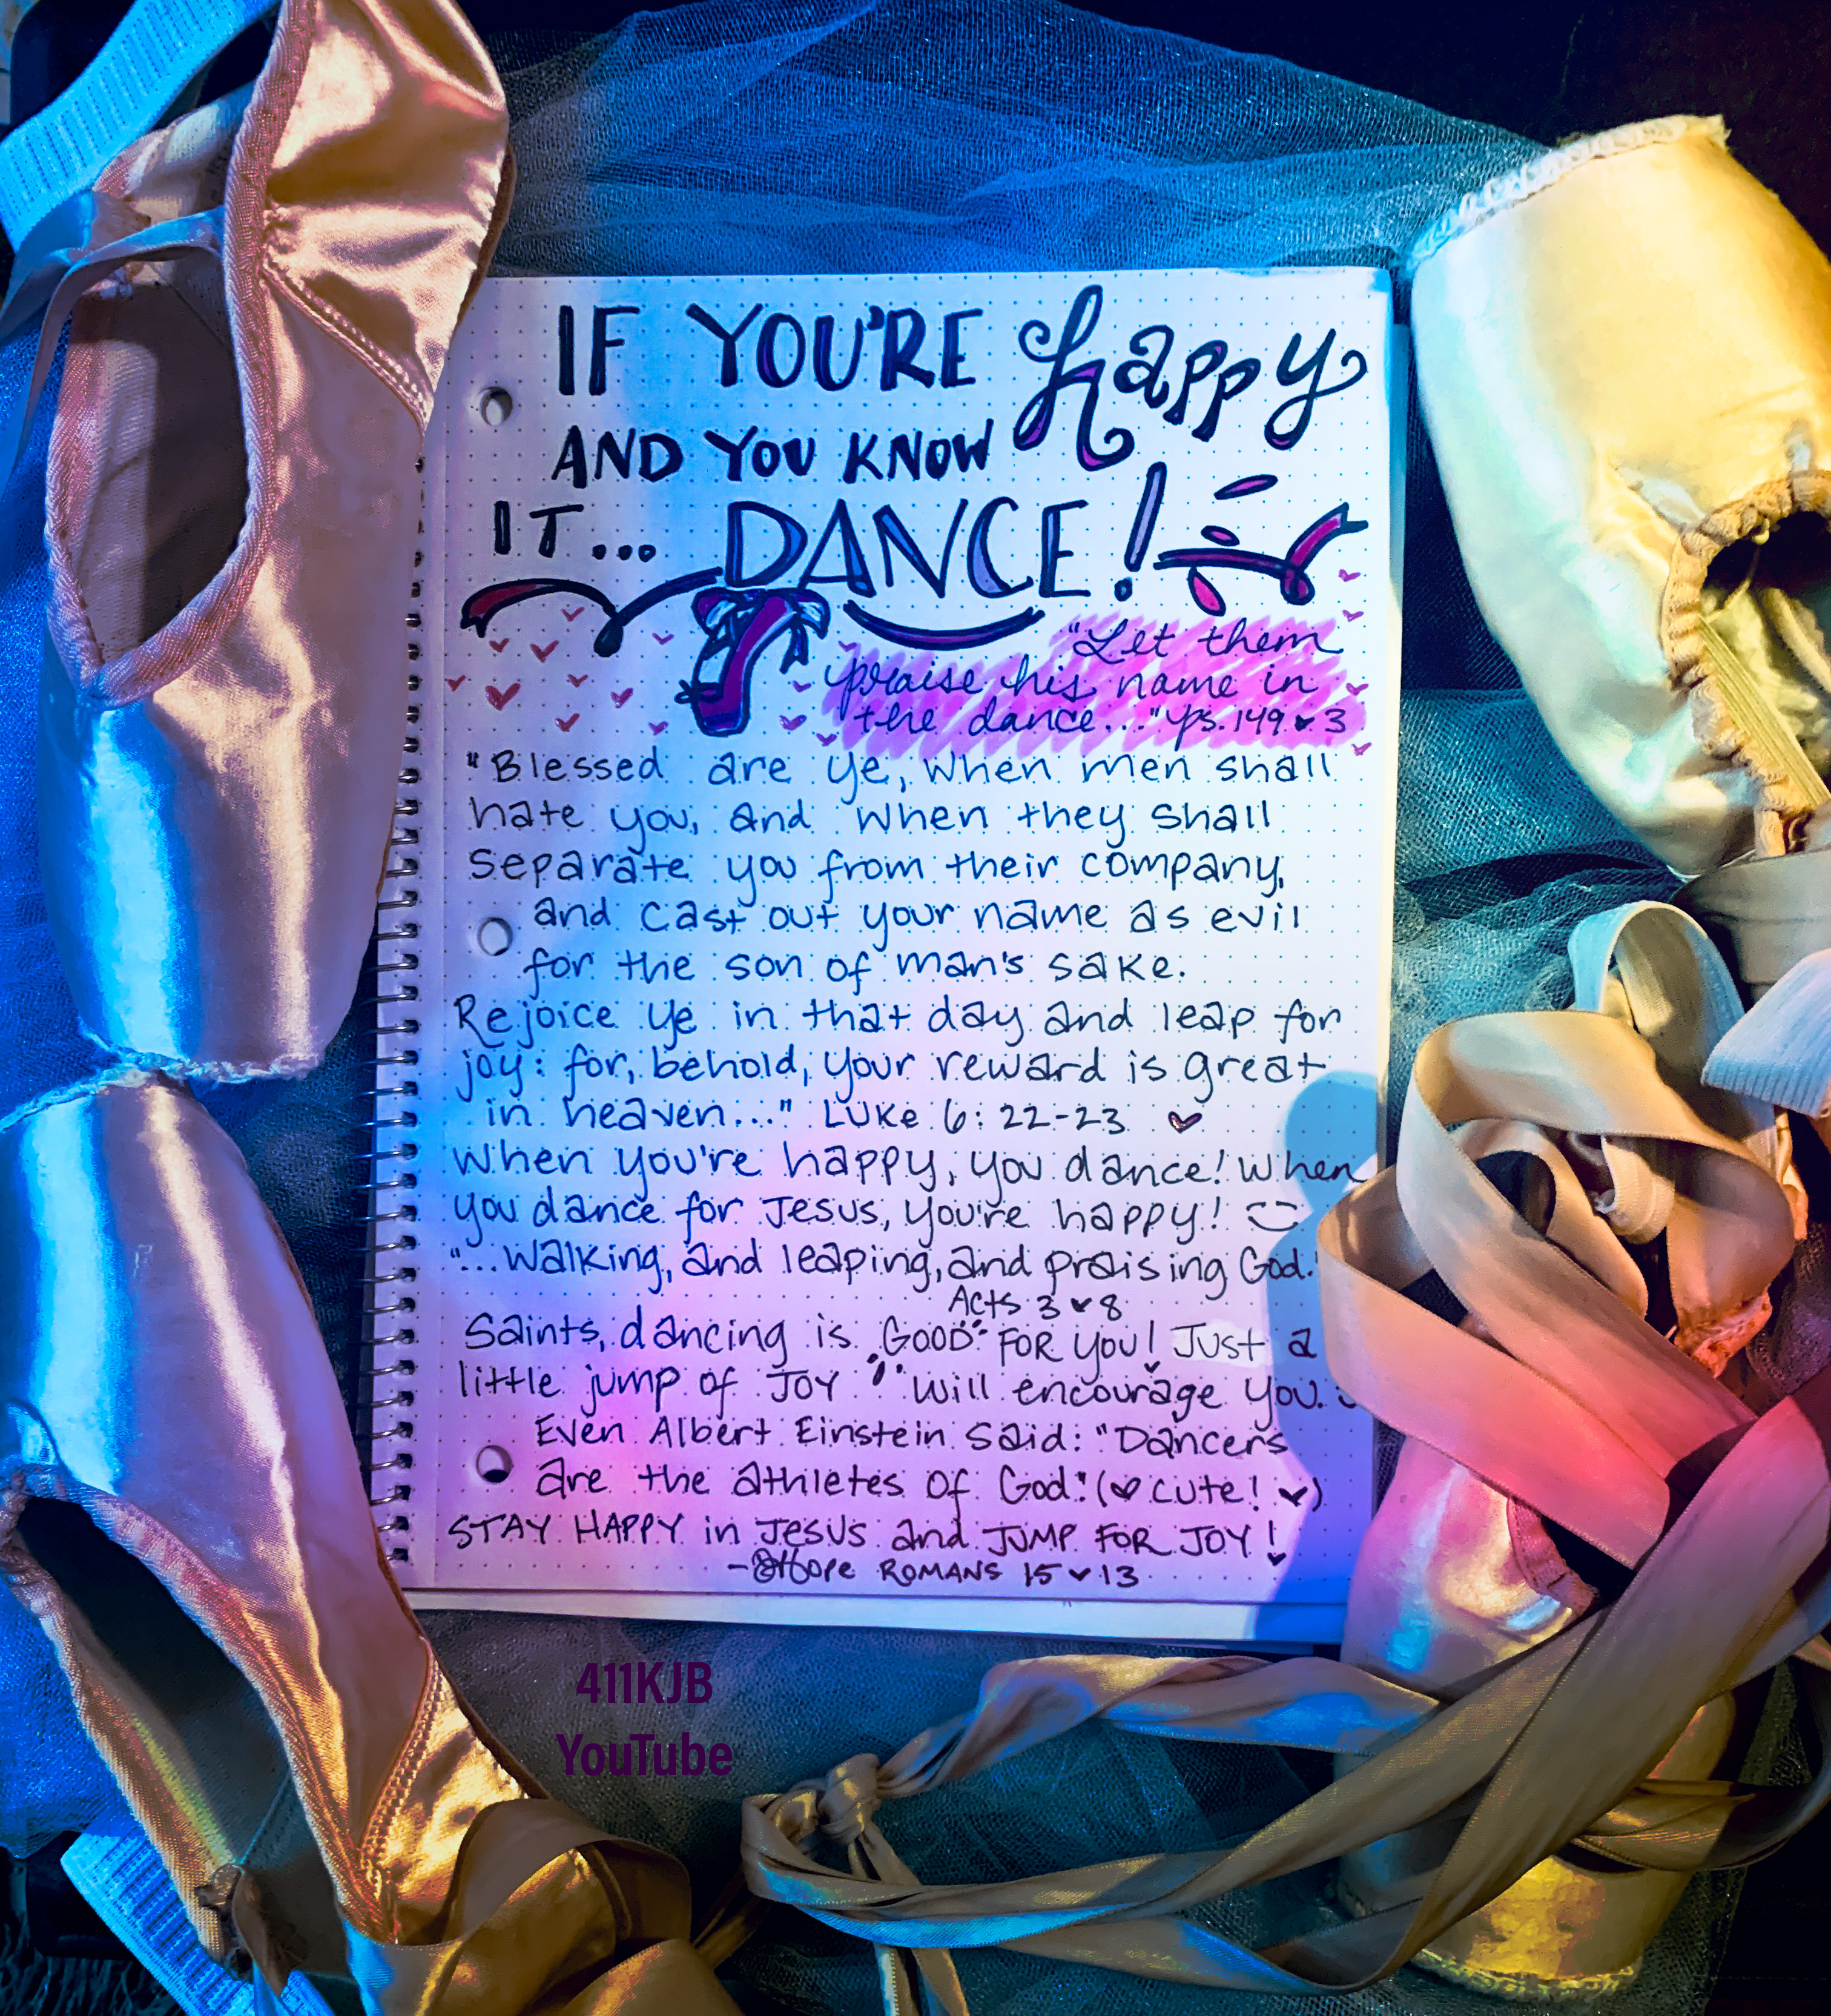 IF YOU'RE happy
AND YOU KNOW
IT... DANCE!
"Let them
praise his name in
the dance..." ps. 149 ♥ 3
"Blessed are ye, when men shall
hate you, and when they shall
separate you from their company,
and cast out your name as evil
for the son of man's sake.
Rejoice ye in that day and leap for
joy: for, behold, your reward is great
in heaven..." LUKE 6:22-23 ♥
When you're happy, you dance! When
you dance for Jesus, you're happy!
"...walking, and leaping, and praising God."
Acts 3 ♥ 8
Saints, dancing is GOOD FOR YOU! Just a
little jump of JOY will encourage you.
Even Albert Einstein said: "Dancers
are the athletes of God." (♥ cute! ♥)
STAY HAPPY in Jesus and JUMP FOR JOY!
-Hope ROMANS 15 ♥ 13
411KJB
YouTube